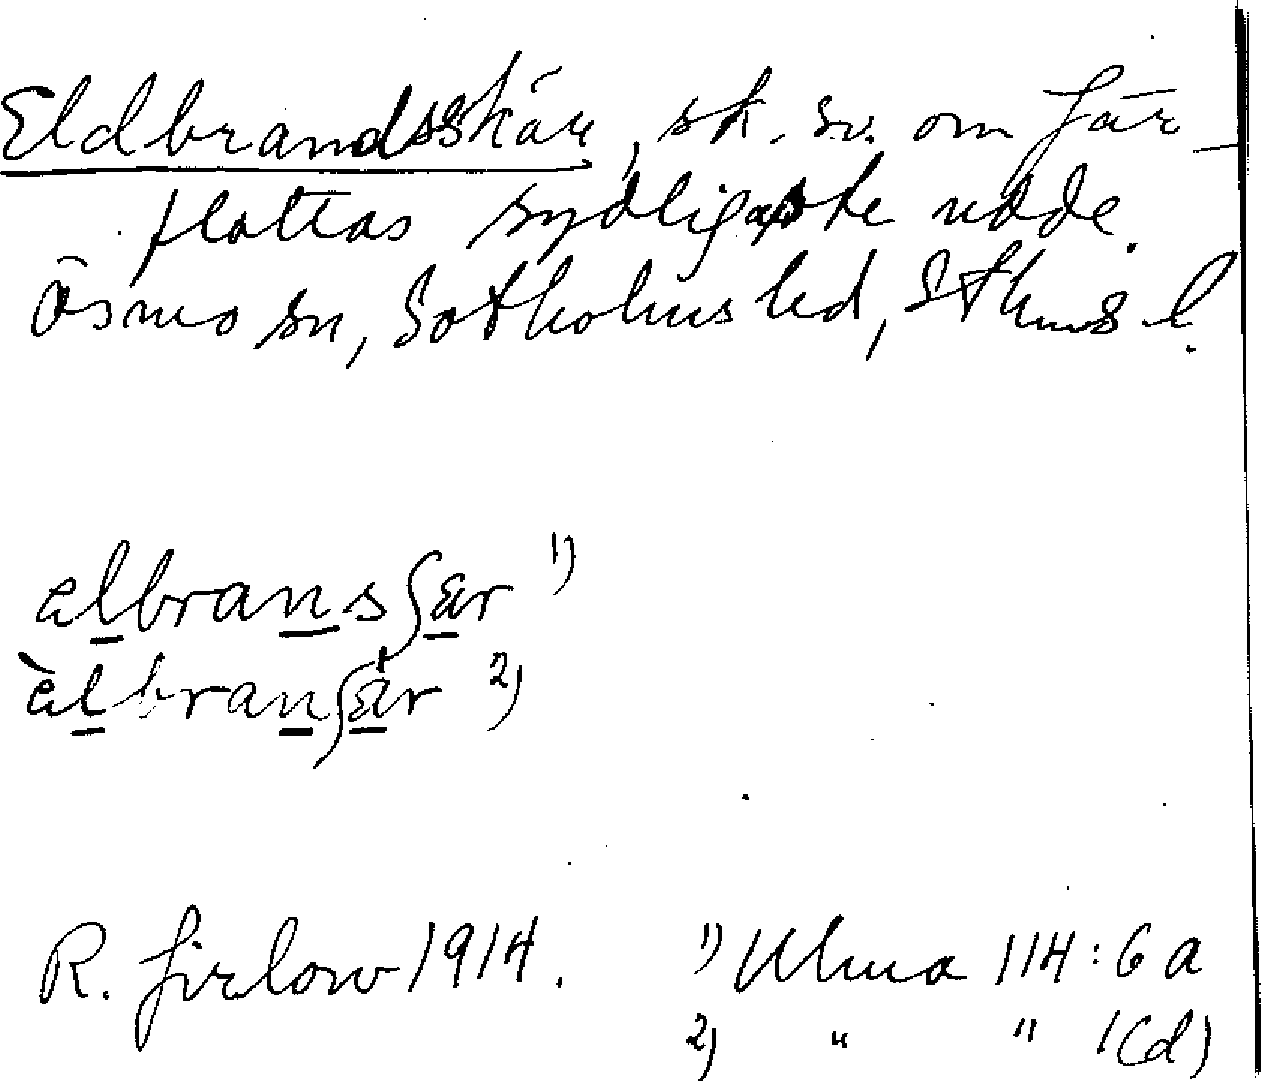 Eldbrandsskär, sk. sv. om Får-
flattas sydligaste udde.
Ösmo sn, Sotholms hd, Sthms l.
elbransʃär ¹⁾
èlbranʃär ²⁾
R. Firlow 1914. ¹⁾ Ulma 114:6 a
²⁾ " " 1(d)